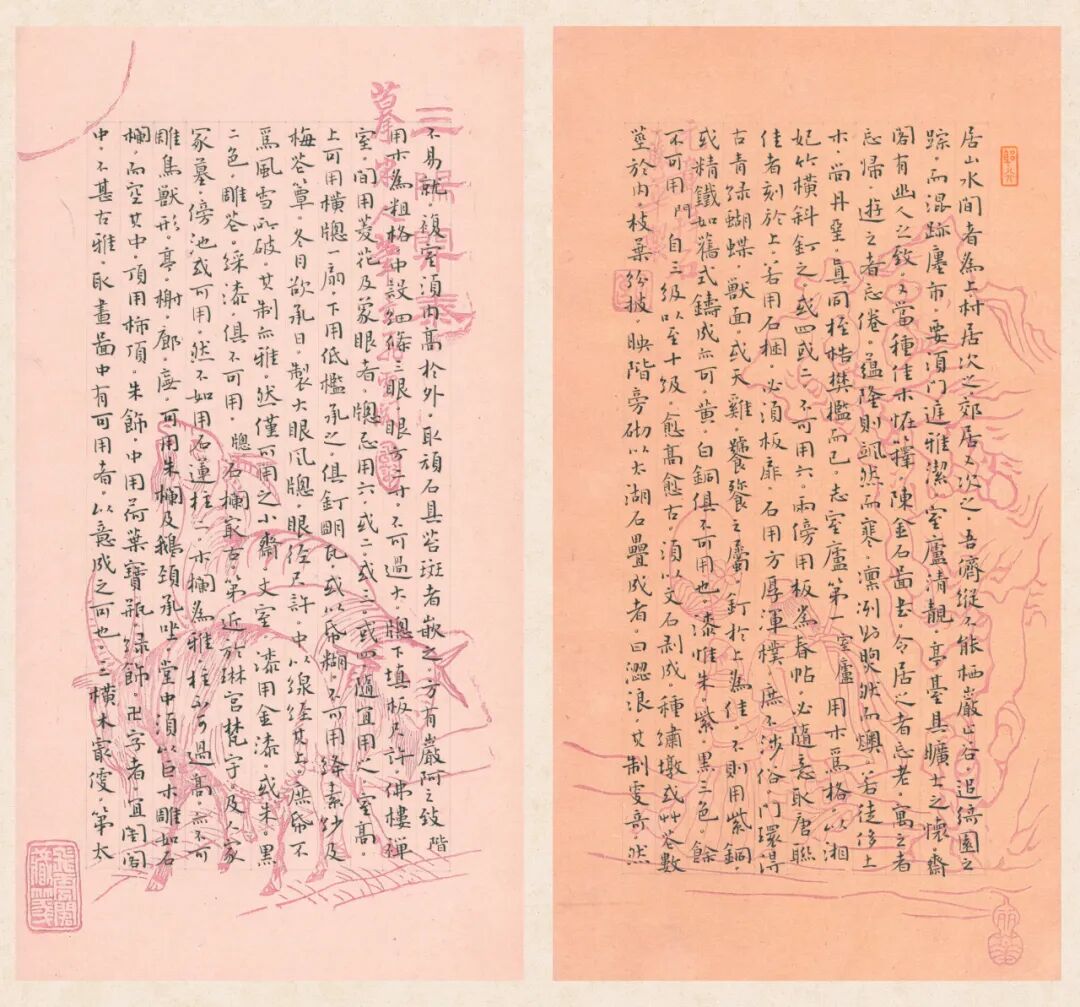 居山水間者為上。村居次之。郊居又次之。吾儕縱不能栖巖止谷。追綺園之
踪。而混跡廛市。要須門庭雅潔。室廬清靚。亭臺具曠士之懷。齋
閣有幽人之致。又當種佳木怪籜。陳金石圖書。令居之者忘老。寓之者
忘歸。遊之者忘倦。蘊隆則颯然而寒。凜冽則煦然而燠。若徒侈土
木。尚丹堊。真同桎梏樊檻而已。志室廬第一 室廬 用木為格。以湘
妃竹橫斜釘之。或四或二。不可用六。兩傍用板為春帖。必隨意取唐聯
佳者刻於上。若用石梱。必須板扉。石用方厚渾樸。庶不涉俗。門環得
古青綠蝴蝶。獸面。或天雞。饕餮之屬。釘於上為佳。不則用紫銅
或精鐵。如舊式鑄成亦可。黃。白銅俱不可用也。漆惟朱。紫。黑三色。餘
不可用。門 自三級以至十級。愈高愈古。須以文石剝成。種繡墩或艸花數
莖於內。枝葉紛披。映階旁砌。以太湖石疊成者。曰澀浪。其制更奇。然
不易就。複室須內高於外。取頑石具苔斑者嵌之。方有巖阿之致 階
用木為粗格。中設細條三眼。眼方二寸。不可過大。牕下填板尺許。佛樓禪
室。間用菱花及象眼者。牕忌用六。或二。或三。或四。隨宜用之。室高。
上可用橫牕一扇。下用低檻承之。俱釘明瓦。或以帋糊。不可用絳素紗及
梅花簟。冬月欲承日。製大眼風牕。眼徑尺許。中以線經其上。庶帋不
為風雪所破。其制亦雅。然僅可用之小齋丈室。漆用金漆。或朱。黑
二色。雕花。綵漆。俱不可用。牕 石欄最古。第近於琳宮梵宇。及人家
冢墓。傍池或可用。然不如用石蓮柱二。木欄為雅。柱不可過高。亦不可
雕鳥獸形。亭。榭。廊。廡。可用朱欄及鵝頸承坐。堂中須以巨木雕如石
欄。而空其中。頂用柿頂。朱飾。中用荷葉寶瓶。綠飾。卍字者。宜閨閣
中。不甚古雅。取畫圖中有可用者。以意成之可也。三橫木最便。第太
三陽開泰